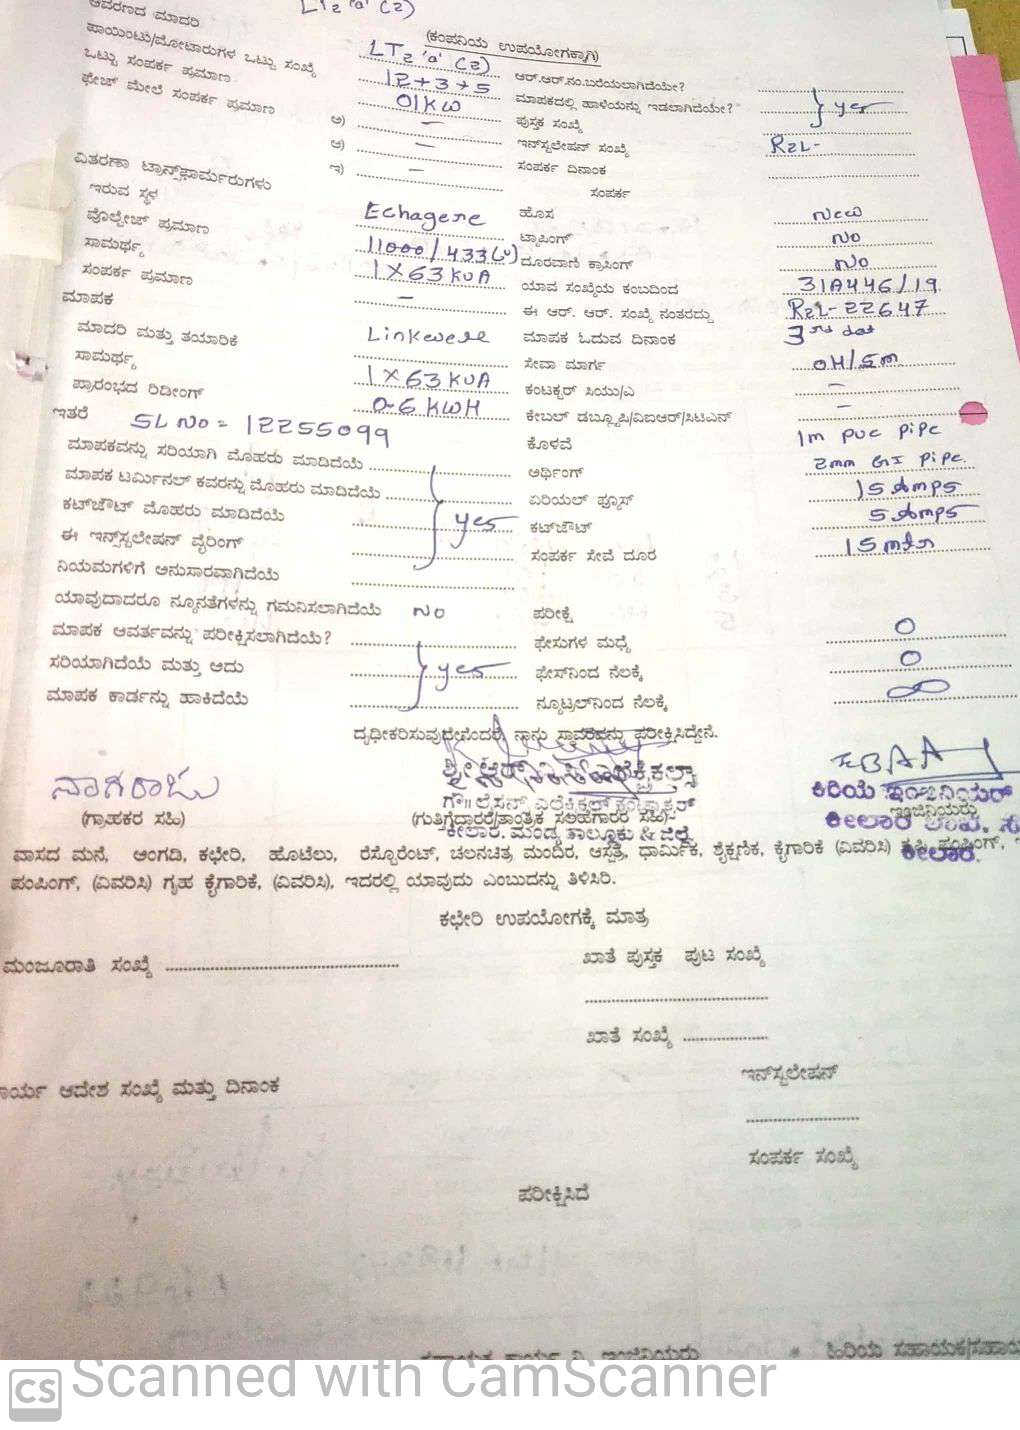 LT2 'a' (2)
ಆವರಣದ ಮಾದರಿ
(ಕಂಪನಿಯ ಉಪಯೋಗಕ್ಕಾಗಿ)
ಪಾಯಿಂಟು/ಮೋಟಾರುಗಳ ಒಟ್ಟು ಸಂಖ್ಯೆ LT2 'a' (2) ಆರ್.ಆರ್.ನಂ.ಬರೆಯಲಾಗಿದೆಯೇ?
ಒಟ್ಟು ಸಂಪರ್ಕ ಪ್ರಮಾಣ 12+3+5 ಮಾಪಕದಲ್ಲಿ ಹಾಳೆಯನ್ನು ಇಡಲಾಗಿದೆಯೇ? yes
ಫೇಜ್ ಮೇಲೆ ಸಂಪರ್ಕ ಪ್ರಮಾಣ 01KW ಪುಸ್ತಕ ಸಂಖ್ಯೆ
ಅ) — ಇನ್‌ಸ್ಟಲೇಷನ್ ಸಂಖ್ಯೆ R2L-
ಆ) — ಸಂಪರ್ಕ ದಿನಾಂಕ
ವಿತರಣಾ ಟ್ರಾನ್ಸ್‌ಫಾರ್ಮರುಗಳು ಇ) — ಸಂಪರ್ಕ
ಇರುವ ಸ್ಥಳ Echagere ಹೊಸ New
ವೊಲ್ಟೇಜ್ ಪ್ರಮಾಣ 11000/433(v) ಟ್ಯಾಪಿಂಗ್ No
ಸಾಮರ್ಥ್ಯ 1X63KVA ದೂರವಾಣಿ ಕ್ರಾಸಿಂಗ್ No
ಸಂಪರ್ಕ ಪ್ರಮಾಣ — ಯಾವ ಸಂಖ್ಯೆಯ ಕಂಬದಿಂದ 31A446/19
ಮಾಪಕ ಈ ಆರ್. ಆರ್. ಸಂಖ್ಯೆ ನಂತರದ್ದು R2L-22647
ಮಾದರಿ ಮತ್ತು ತಯಾರಿಕೆ Linkwell ಮಾಪಕ ಓದುವ ದಿನಾಂಕ 3rd dat
ಸಾಮರ್ಥ್ಯ 1X63KVA ಸೇವಾ ಮಾರ್ಗ OH/Sm
ಪ್ರಾರಂಭದ ರಿಡೀಂಗ್ 0-6 KWH ಕಂಟಕ್ಟರ್ ಸಿಯು/ಎ —
ಇತರೆ SL No = 12255099 ಕೇಬಲ್ ಡಬ್ಲ್ಯೂಪಿ/ವಿಐಆರ್/ಸಿಟಿಎನ್ —
ಮಾಪಕವನ್ನು ಸರಿಯಾಗಿ ಮೊಹರು ಮಾಡಿದೆಯೆ ಕೊಳವೆ 1m PVC Pipe
ಮಾಪಕ ಟರ್ಮಿನಲ್ ಕವರನ್ನು ಮೊಹರು ಮಾಡಿದೆಯೆ ಅರ್ಥಿಂಗ್ 2mm GI Pipe.
ಕಟ್‌ಔಟ್ ಮೊಹರು ಮಾಡಿದೆಯೆ yes ಏರಿಯಲ್ ಫ್ಯೂಸ್ 15 Amps
ಈ ಇನ್ಸ್‌ಸ್ಟಲೇಷನ್ ವೈರಿಂಗ್ ಕಟ್‌ಔಟ್ 5 Amps
ನಿಯಮಗಳಿಗೆ ಅನುಸಾರವಾಗಿದೆಯೆ ಸಂಪರ್ಕ ಸೇವೆ ದೂರ 15 mtr
ಯಾವುದಾದರೂ ನ್ಯೂನತೆಗಳನ್ನು ಗಮನಿಸಲಾಗಿದೆಯೆ No ಪರೀಕ್ಷೆ
ಮಾಪಕ ಆವರ್ತವನ್ನು ಪರೀಕ್ಷಿಸಲಾಗಿದೆಯೆ? ಫೇಸುಗಳ ಮಧ್ಯೆ 0
ಸರಿಯಾಗಿದೆಯೆ ಮತ್ತು ಅದು yes ಫೇಸ್‌ನಿಂದ ನೆಲಕ್ಕೆ 0
ಮಾಪಕ ಕಾರ್ಡನ್ನು ಹಾಕಿದೆಯೆ ನ್ಯೂಟ್ರಲ್‌ನಿಂದ ನೆಲಕ್ಕೆ ∞
ದೃಢೀಕರಿಸುವುದೇನೆಂದರೆ, ನಾನು ಸ್ಥಾವರವನ್ನು ಪರೀಕ್ಷಿಸಿದ್ದೇನೆ.
ನಾಗರಾಜು ಎಲೆಕ್ಟ್ರಿಕಲ್ಸ್ ಕಿರಿಯ ಇಂಜಿನಿಯರ್
(ಗ್ರಾಹಕರ ಸಹಿ) (ಗುತ್ತಿಗೆದಾರರ/ತಾಂತ್ರಿಕ ಸಲಹೆಗಾರರ ಸಹಿ) ಇಂಜಿನಿಯರು
ಕೀಲಾರ, ಮಂಡ್ಯ ತಾಲ್ಲೂಕು & ಜಿಲ್ಲೆ ಕೀಲಾರ
ವಾಸದ ಮನೆ, ಅಂಗಡಿ, ಕಛೇರಿ, ಹೊಟೆಲು, ರೆಸ್ಟೋರೆಂಟ್, ಚಲನಚಿತ್ರ ಮಂದಿರ, ಆಸ್ಪತ್ರೆ, ಧಾರ್ಮಿಕ, ಶೈಕ್ಷಣಿಕ, ಕೈಗಾರಿಕೆ (ವಿವರಿಸಿ) ಕೃಷಿ ಪಂಪಿಂಗ್,
ಪಂಪಿಂಗ್, (ವಿವರಿಸಿ) ಗೃಹ ಕೈಗಾರಿಕೆ, (ವಿವರಿಸಿ), ಇದರಲ್ಲಿ ಯಾವುದು ಎಂಬುದನ್ನು ತಿಳಿಸಿರಿ.
ಕಛೇರಿ ಉಪಯೋಗಕ್ಕೆ ಮಾತ್ರ
ಮಂಜೂರಾತಿ ಸಂಖ್ಯೆ ಖಾತೆ ಪುಸ್ತಕ ಪುಟ ಸಂಖ್ಯೆ
ಖಾತೆ ಸಂಖ್ಯೆ
ಆದೇಶ ಸಂಖ್ಯೆ ಮತ್ತು ದಿನಾಂಕ ಇನ್‌ಸ್ಟಲೇಷನ್
ಸಂಪರ್ಕ ಸಂಖ್ಯೆ
ಪರೀಕ್ಷಿಸಿದೆ
CS Scanned with CamScanner